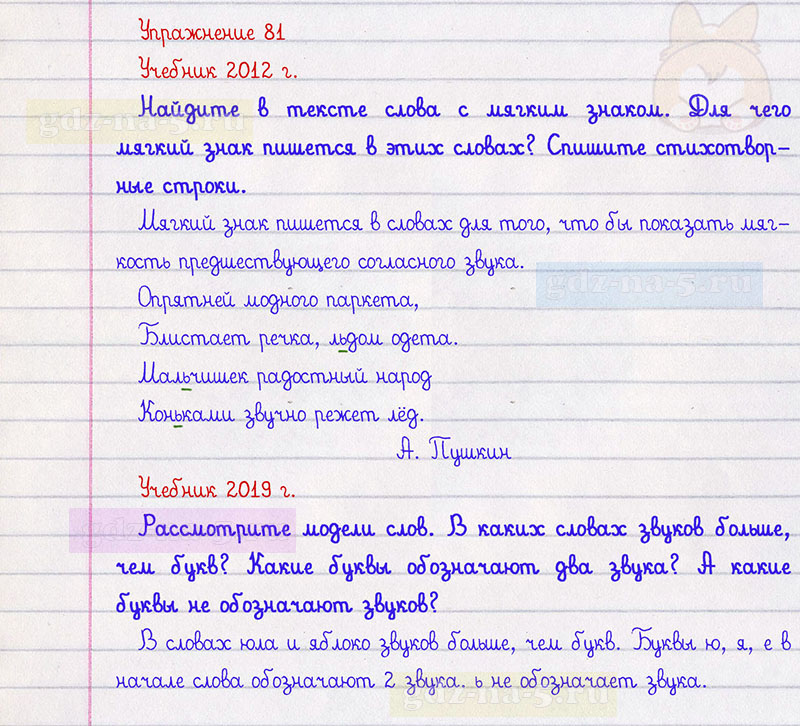 Упражнение 81
Учебник 2012 г.
Найдите в тексте слова с мягким знаком. Для чего
мягкий знак пишется в этих словах? Спишите стихотвор-
ные строки.
Мягкий знак пишется в словах для того, что бы показать мяг-
кость предшествующего согласного звука.
Опрятней модного паркета,
Блистает речка, льдом одета.
Мальчишек радостный народ
Коньками звучно режет лёд.
А. Пушкин
Учебник 2019 г.
Рассмотрите модели слов. В каких словах звуков больше,
чем букв? Какие буквы обозначают два звука? А какие
буквы не обозначают звуков?
В словах юла и яблоко звуков больше, чем букв. Буквы ю, я, е в
начале слова обозначают 2 звука. ь не обозначает звука.
gdz-na-5.ru
gdz-na-5.ru
gdz-na-5.ru
gdz-na-5.ru